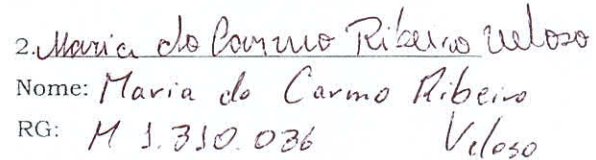 2. Maria do Carmo Ribeiro Veloso
Nome: Maria do Carmo Ribeiro
Veloso
RG: M 1.310.036